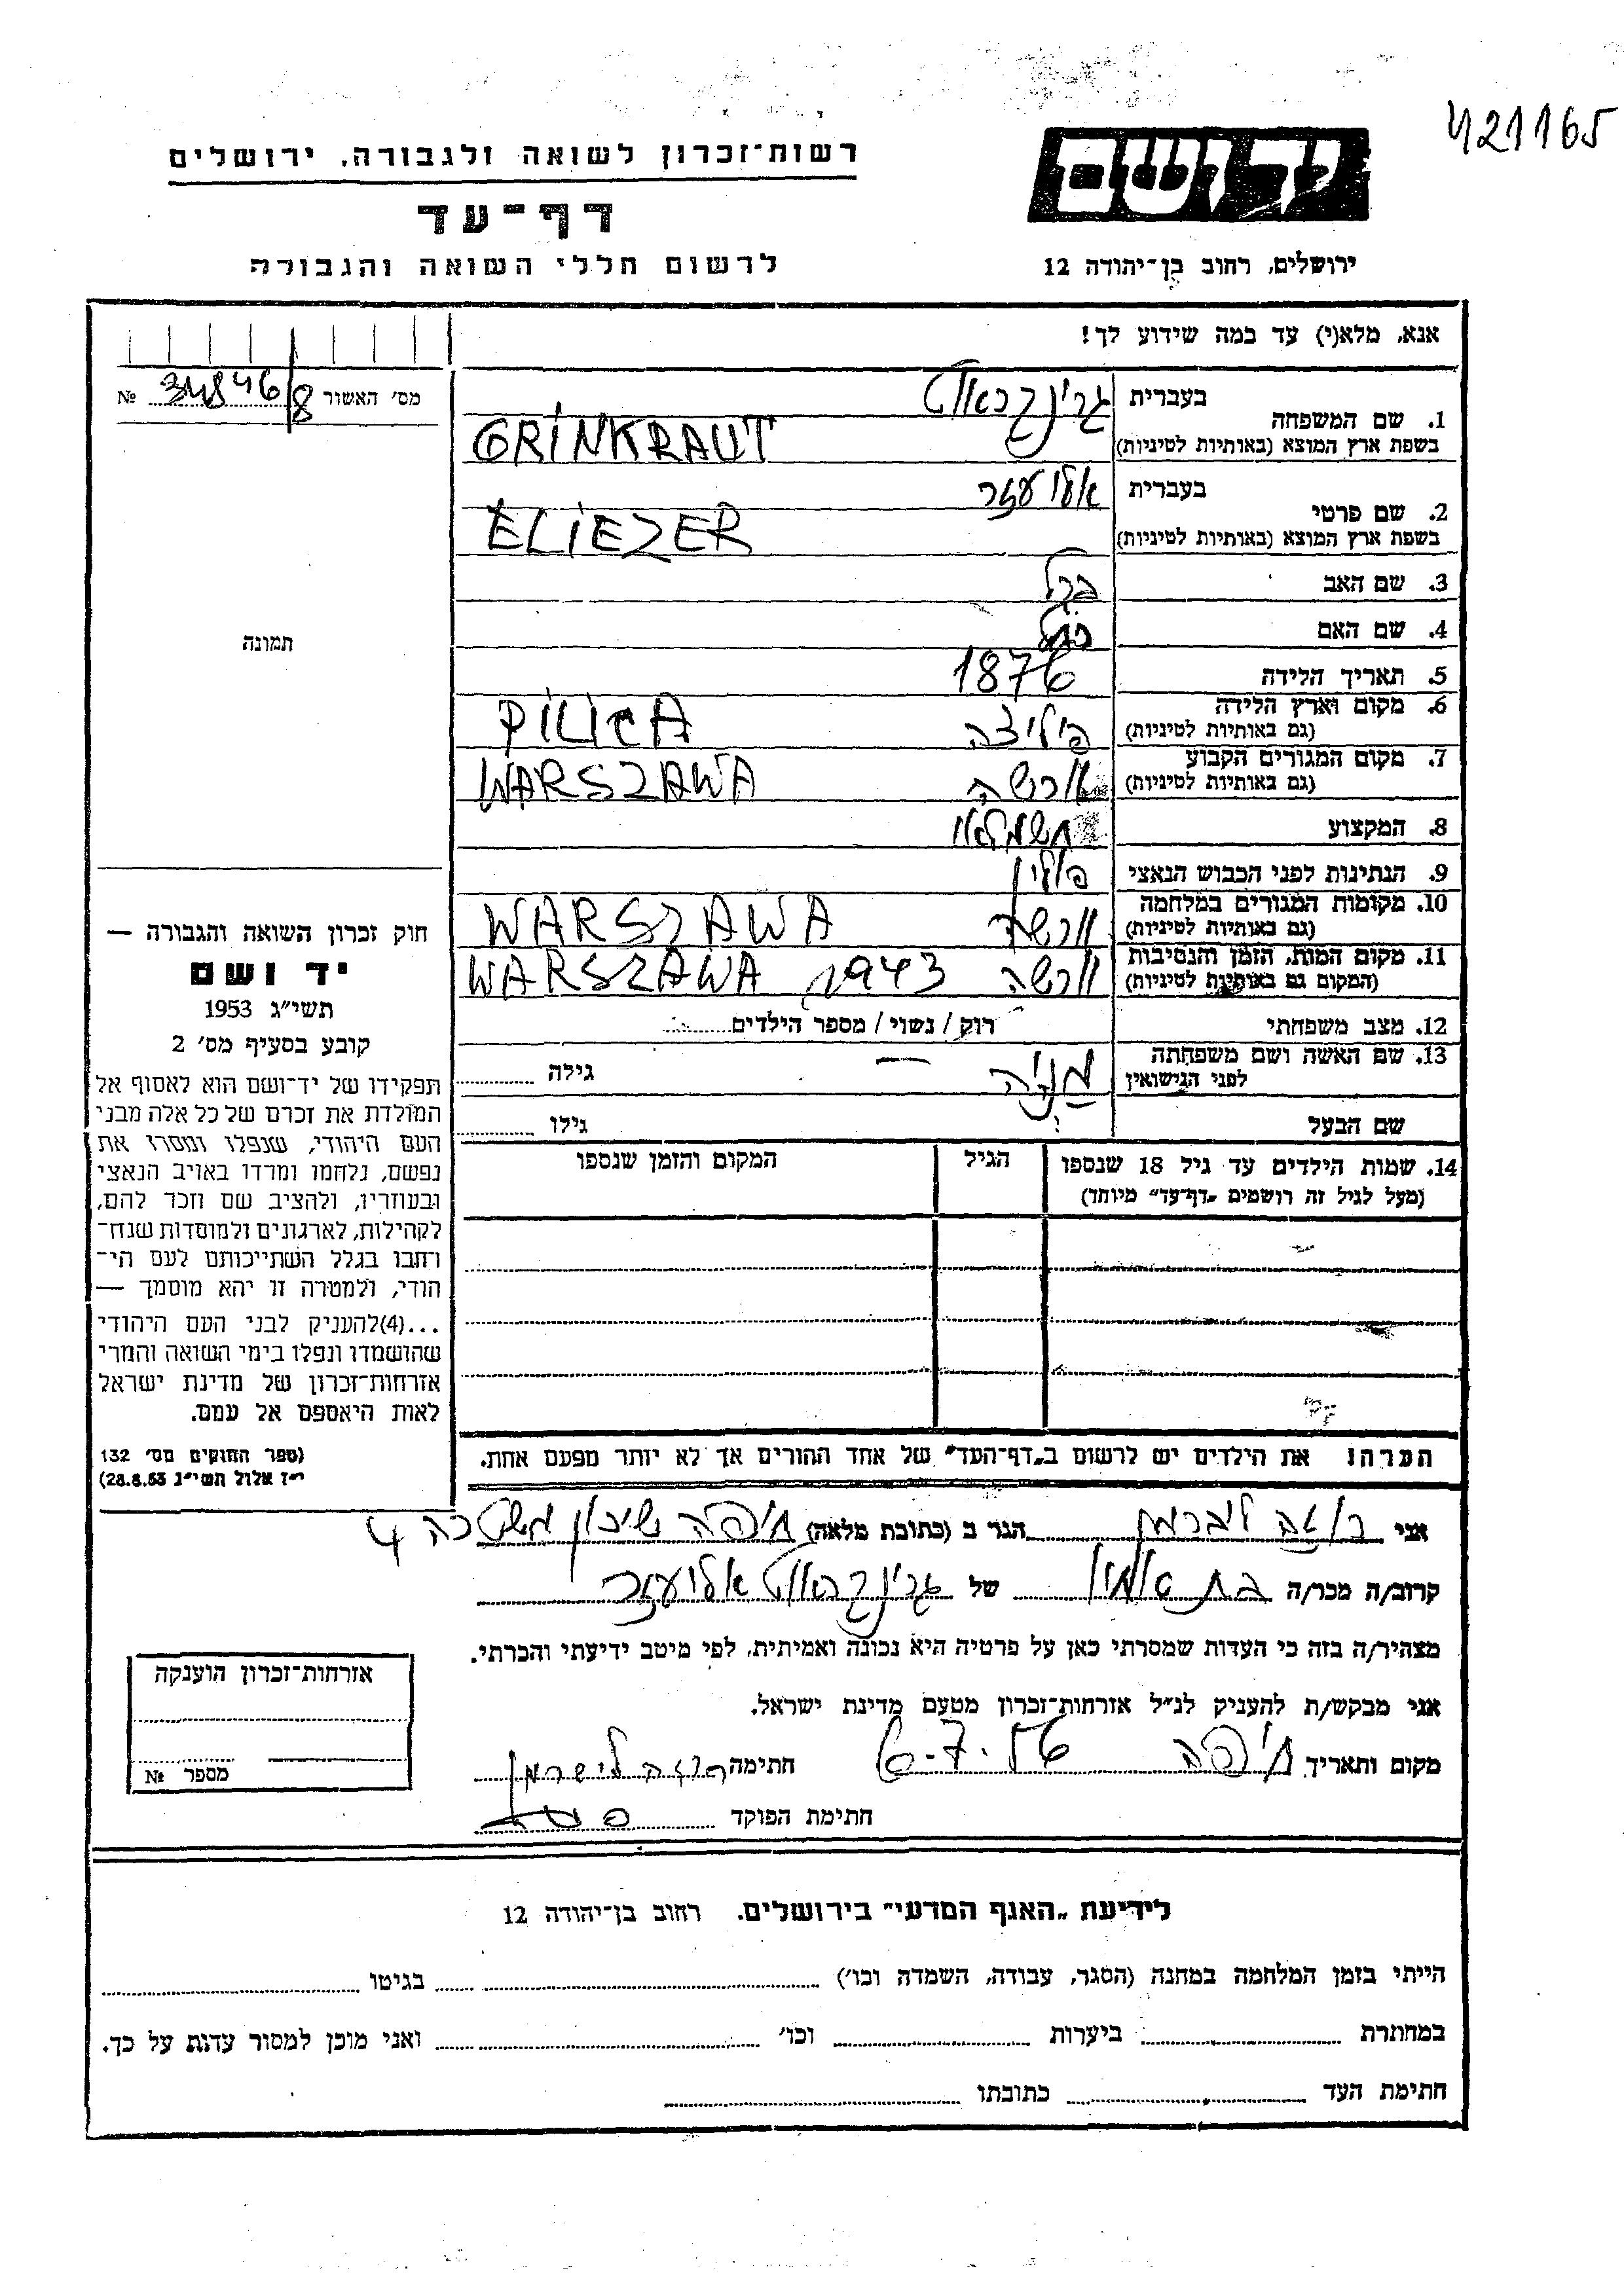 421165
רשות־זכרון לשואה ולגבורה, ירושלים
יד ושם
דף־עד
לרשום חללי השואה והגבורה
ירושלים, רחוב בן־יהודה 12
אנא, מלא(י) עד כמה שידוע לך!
מס' האשור 34846/8 №
1. שם המשפחה
בעברית גרינקראוט
בשפת ארץ המוצא (באותיות לטיניות) GRINKRAUT
2. שם פרטי
בעברית אליעזר
בשפת ארץ המוצא (באותיות לטיניות) ELIEZER
3. שם האב
4. שם האם
5. תאריך הלידה 1876
6. מקום וארץ הלידה
(גם באותיות לטיניות) פיליצה PILICA
7. מקום המגורים הקבוע
(גם באותיות לטיניות) ורשה WARSZAWA
8. המקצוע חשמלאי
9. הנתינות לפני הכבוש הנאצי פולין
10. מקומות המגורים במלחמה
(גם באותיות לטיניות) ורשה WARSZAWA
11. מקום המות, הזמן והנסיבות
(המקום גם באותיות לטיניות) ורשה 1943 WARSZAWA
12. מצב משפחתי רוק / נשוי / מספר הילדים
13. שם האשה ושם משפחתה
לפני הנישואין מניה — גילה
שם הבעל גילו
14. שמות הילדים עד גיל 18 שנספו הגיל המקום והזמן שנספו
(מעל לגיל זה רושמים „דף־עד" מיוחד)
הערה: את הילדים יש לרשום ב„דף־העד" של אחד ההורים אך לא יותר מפעם אחת.
תמונה
חוק זכרון השואה והגבורה —
יד ושם
תשי״ג 1953
קובע בסעיף מס' 2
תפקידו של יד־ושם הוא לאסוף אל
המולדת את זכרם של כל אלה מבני
העם היהודי, שנפלו ומסרו את
נפשם, נלחמו ומרדו באויב הנאצי
ובעוזריו, ולהציב שם וזכר להם,
לקהילות, לארגונים ולמוסדות שנח־
רחבו בגלל השתייכותם לעם הי־
הודי, ולמטרה זו יהא מוסמך —
...(4)להעניק לבני העם היהודי
שהושמדו ונפלו בימי השואה והמרי
אזרחות־זכרון של מדינת ישראל
לאות היאספם אל עמם.
(ספר החוקים מס' 132
י״ז אלול תשי״ג 28.8.53)
אני רוזה ליברמן הגר ב (כתובת מלאה) חיפה שיכון 4
קרוב/ה מכר/ה של גרינקראוט אליעזר
מצהיר/ה בזה כי העדות שמסרתי כאן על פרטיה היא נכונה ואמיתית, לפי מיטב ידיעתי והכרתי.
אני מבקש/ת להעניק לנ״ל אזרחות־זכרון מטעם מדינת ישראל.
מקום ותאריך חיפה 6.7.56 חתימה רוזה ליברמן
חתימת הפוקד
אזרחות־זכרון הוענקה
מספר №
לידיעת „האגף המדעי" בירושלים. רחוב בן־יהודה 12
הייתי בזמן המלחמה במחנה (הסגר, עבודה, השמדה וכו') בגיטו
במחתרת ביערות וכו' ואני מוכן למסור עדות על כך.
חתימת העד כתובתו